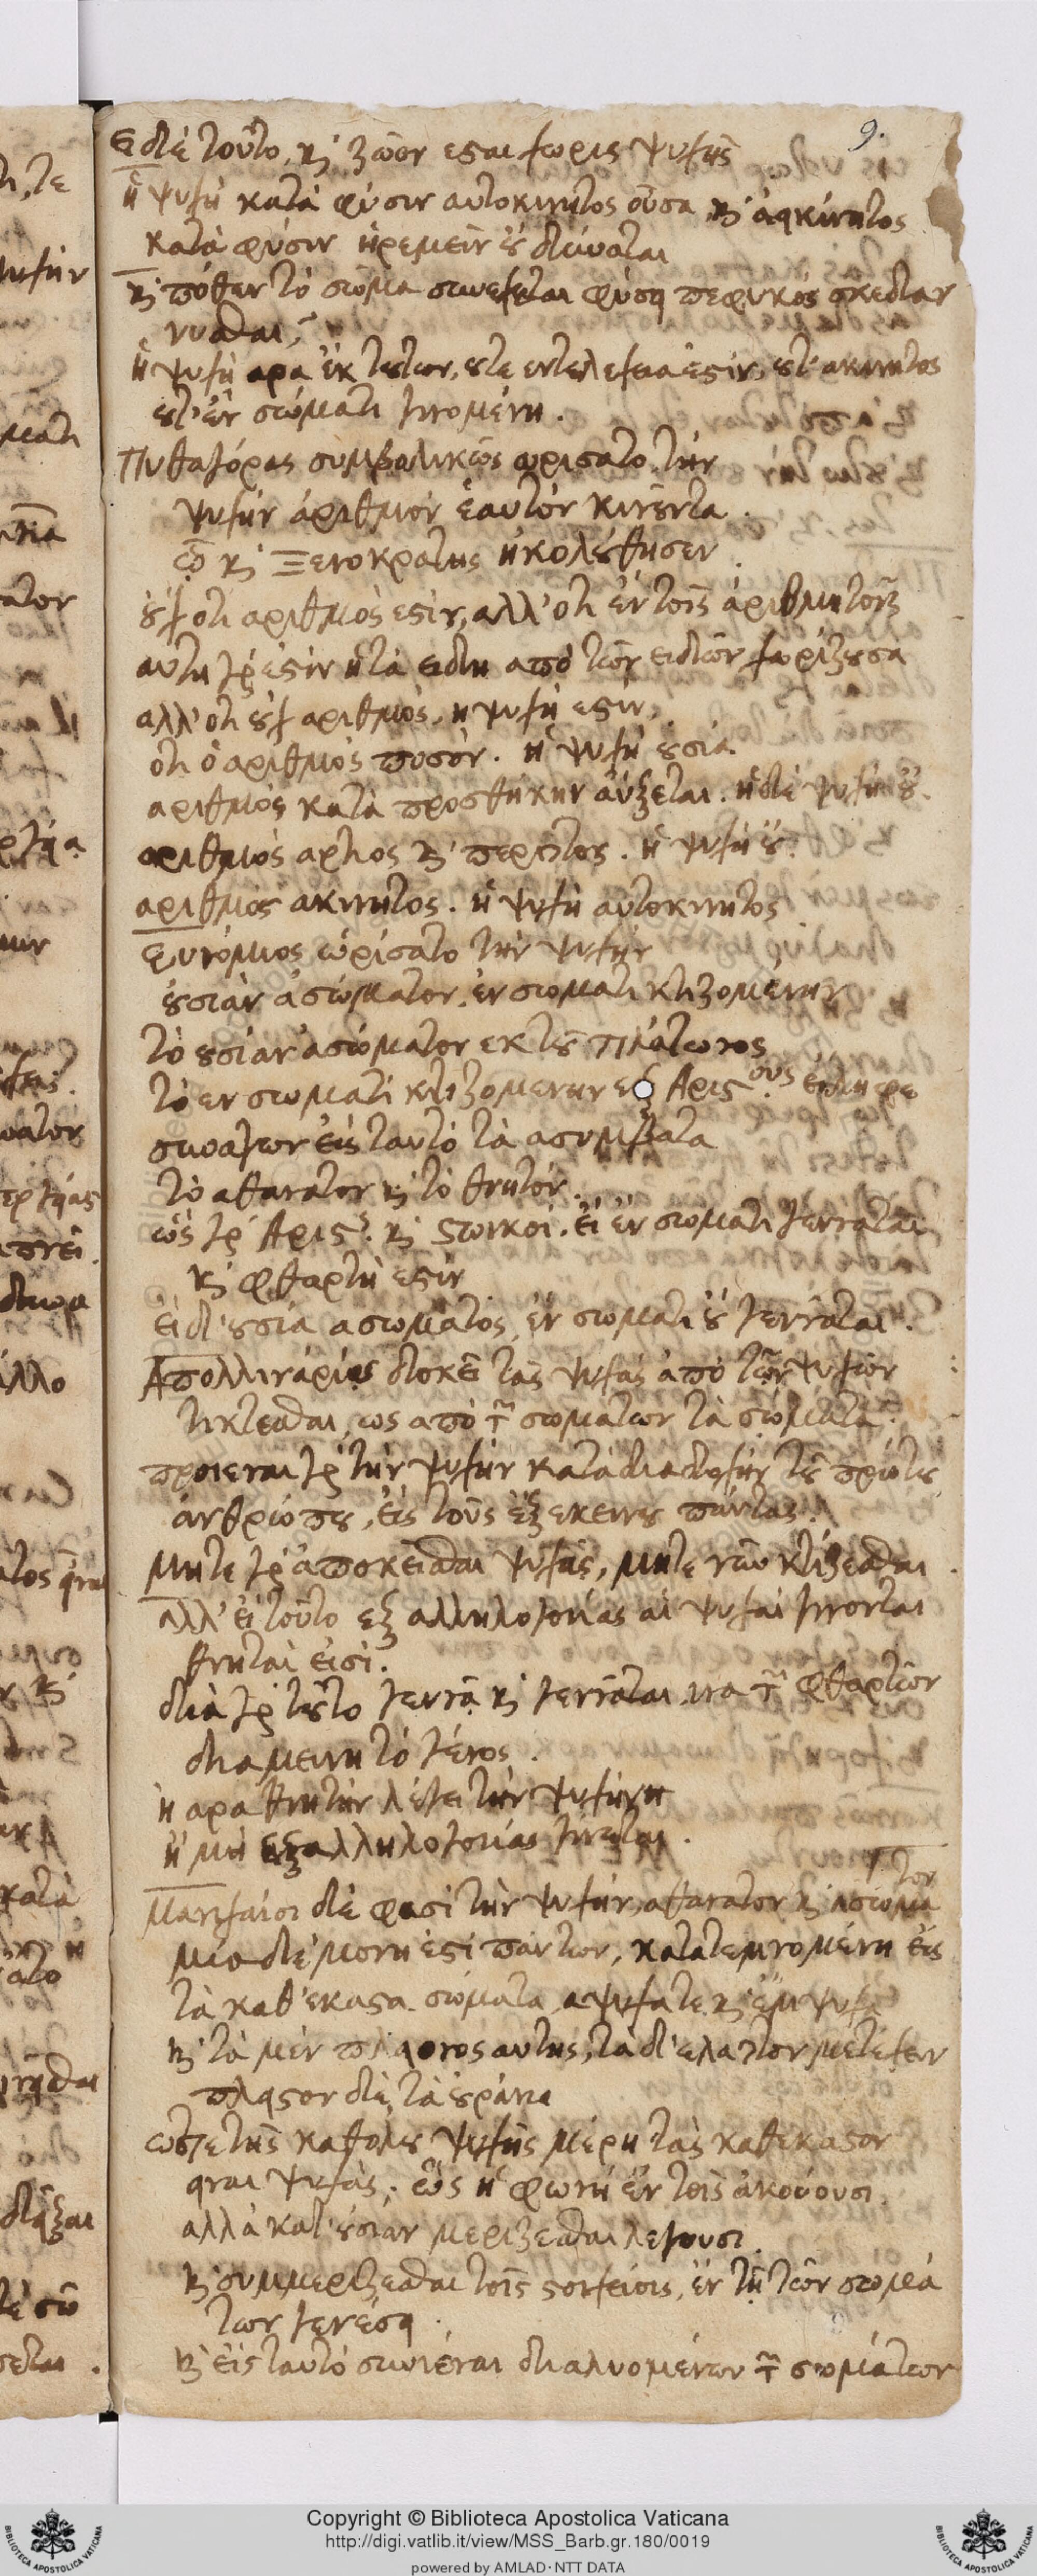 9.
ει δὲ τοῦτο, κ ζῶον εσαι χωρις ψυχῆς
ἡ ψυχὴ κατὰ φύσιν αυτοκινητος οὖσα κ ἀεικίνητος
κατὰ φύσιν ἠρεμεῖν οὐ δύναται
κ πόθεν τὸ σῶμα συνεχεται φύσει πεφυκὸς σκεδαν
νυσθαι;
ἡ ψυχὴ αρα ἐκ τουτων, ουτε εντελεχεια ἐστιν, ουτ' ακινητος
ουτ' ἐν σώματι γινομένη.
Πυθαγόρας συμβολικῶς ωρισατο τὴν
ψυχὴν ἀριθμὸν ἑαυτὸν κινοῦντα.
ᾧ κ Ξενοκρατης ἠκολούθησεν
οὐχ οτι αριθμὸς εστιν, αλλ' οτι ἐν τοῖς ἀριθμητοῖς
αυτη γρ ἐστιν ἡ τὰ ειδη απὸ τῶν ειδῶν χωρίζουσα
αλλ' οτι οὐχ αριθμὸς, η ψυχή εστιν,
οτι ὁ αριθμὸς ποσόν. ἡ ψυχὴ ουσία
αριθμὸς κατὰ προσθήκην ἀύξεται. ἡ δὲ ψυχὴ οὔ.
αριθμὸς αρτιος κ περιττος. ἡ ψυχὴ οὔ.
αριθμὸς ακινητος. ἡ ψυχὴ αυτοκινητος
Ευνόμιος ὡρίσατο τὴν ψυχὴν
οὐσιαν ἀσώματον, ἐν σωματι κτιζομένην
τὸ ουσίαν ἀσώματον εκ τοῦ Πλάτωνος
τὸ εν σωματι κτιζομενην εξ Αριστους
συναγων εἰς ταυτὸ τὰ ασυμβατα
τὸ αθανατον κ τὸ θνητόν.
ὡς γρ Αρις. κ Στωικοι. εἰ ἐν σωματι γενναται
κ φθαρτὴ εστιν
Εἰ δ' ουσία ασωματος ἐν σωματι οὐ γεννᾶται.
Απολλινάριος δοκεῖ τὰς ψυχὰς ἀπὸ τῶν ψυχῶν
τικτεσθαι, ως απὸ τ σωματων τὰ σώματα.
προιεναι γρ τὴν ψυχὴν κατὰ διαδοχὴν τοῦ πρώτου
ἀνθρώπου, εἰς τοὺς ἐξ εκεινου πάντας.
Μητε γρ ἀποκεῖσθαι ψυχὰς, μητε νῦν κτιζεσθαι.
αλλ' εἰ τοῦτο εξ αλληλογονίας αἱ ψυχαὶ γινονται
θνηταὶ εἰσί.
διὰ γρ τοῦτο γεννᾷ κ γεννᾶται, ινα τ φθαρτῶν
διαμεινη τὸ γένος.
ἡ αρα θνητὴν λέγει τὴν ψυχὴν η
ἢ μὴ εξ αλληλογονίας γινεται.
Μανιχαίοι δὲ φασὶ τὴν ψυχὴν, αθανατον κ ασωματον
μια δὲ μονη ἐστὶ πάντων, κατατεμνομένη εἰς
τὰ καθ' εκαστα σώματα αψυχα τε κ ἔμψυχα
κ τὰ μὲν πλειονος αυτης, τὰ δ' ελαττον μετεχειν
πλειστον δὲ, τὰ οὐράνια
ωστε τῆς καθόλου ψυχῆς μέρη τὰς καθεκαστον
ειναι ψυχάς. ὡς ἡ φωνὴ ἐν τοῖς ἀκούουσι.
αλλὰ κατ' οὐσίαν μεριζεσθαι λεγουσι.
κ συμμεριζεσθαι τοῖς στοιχείοις, ἐν τῇ τῶν σωμά
των γενέσει.
κ εἰς ταυτὸ συνιέναι διαλυομένων τ σωμάτων
Copyright © Biblioteca Apostolica Vaticana
http://digi.vatlib.it/view/MSS_Barb.gr.180/0019
powered by AMLAD·NTT DATA
BIBLIOTECA APOSTOLICA VATICANA
BIBLIOTECA APOSTOLICA VATICANA